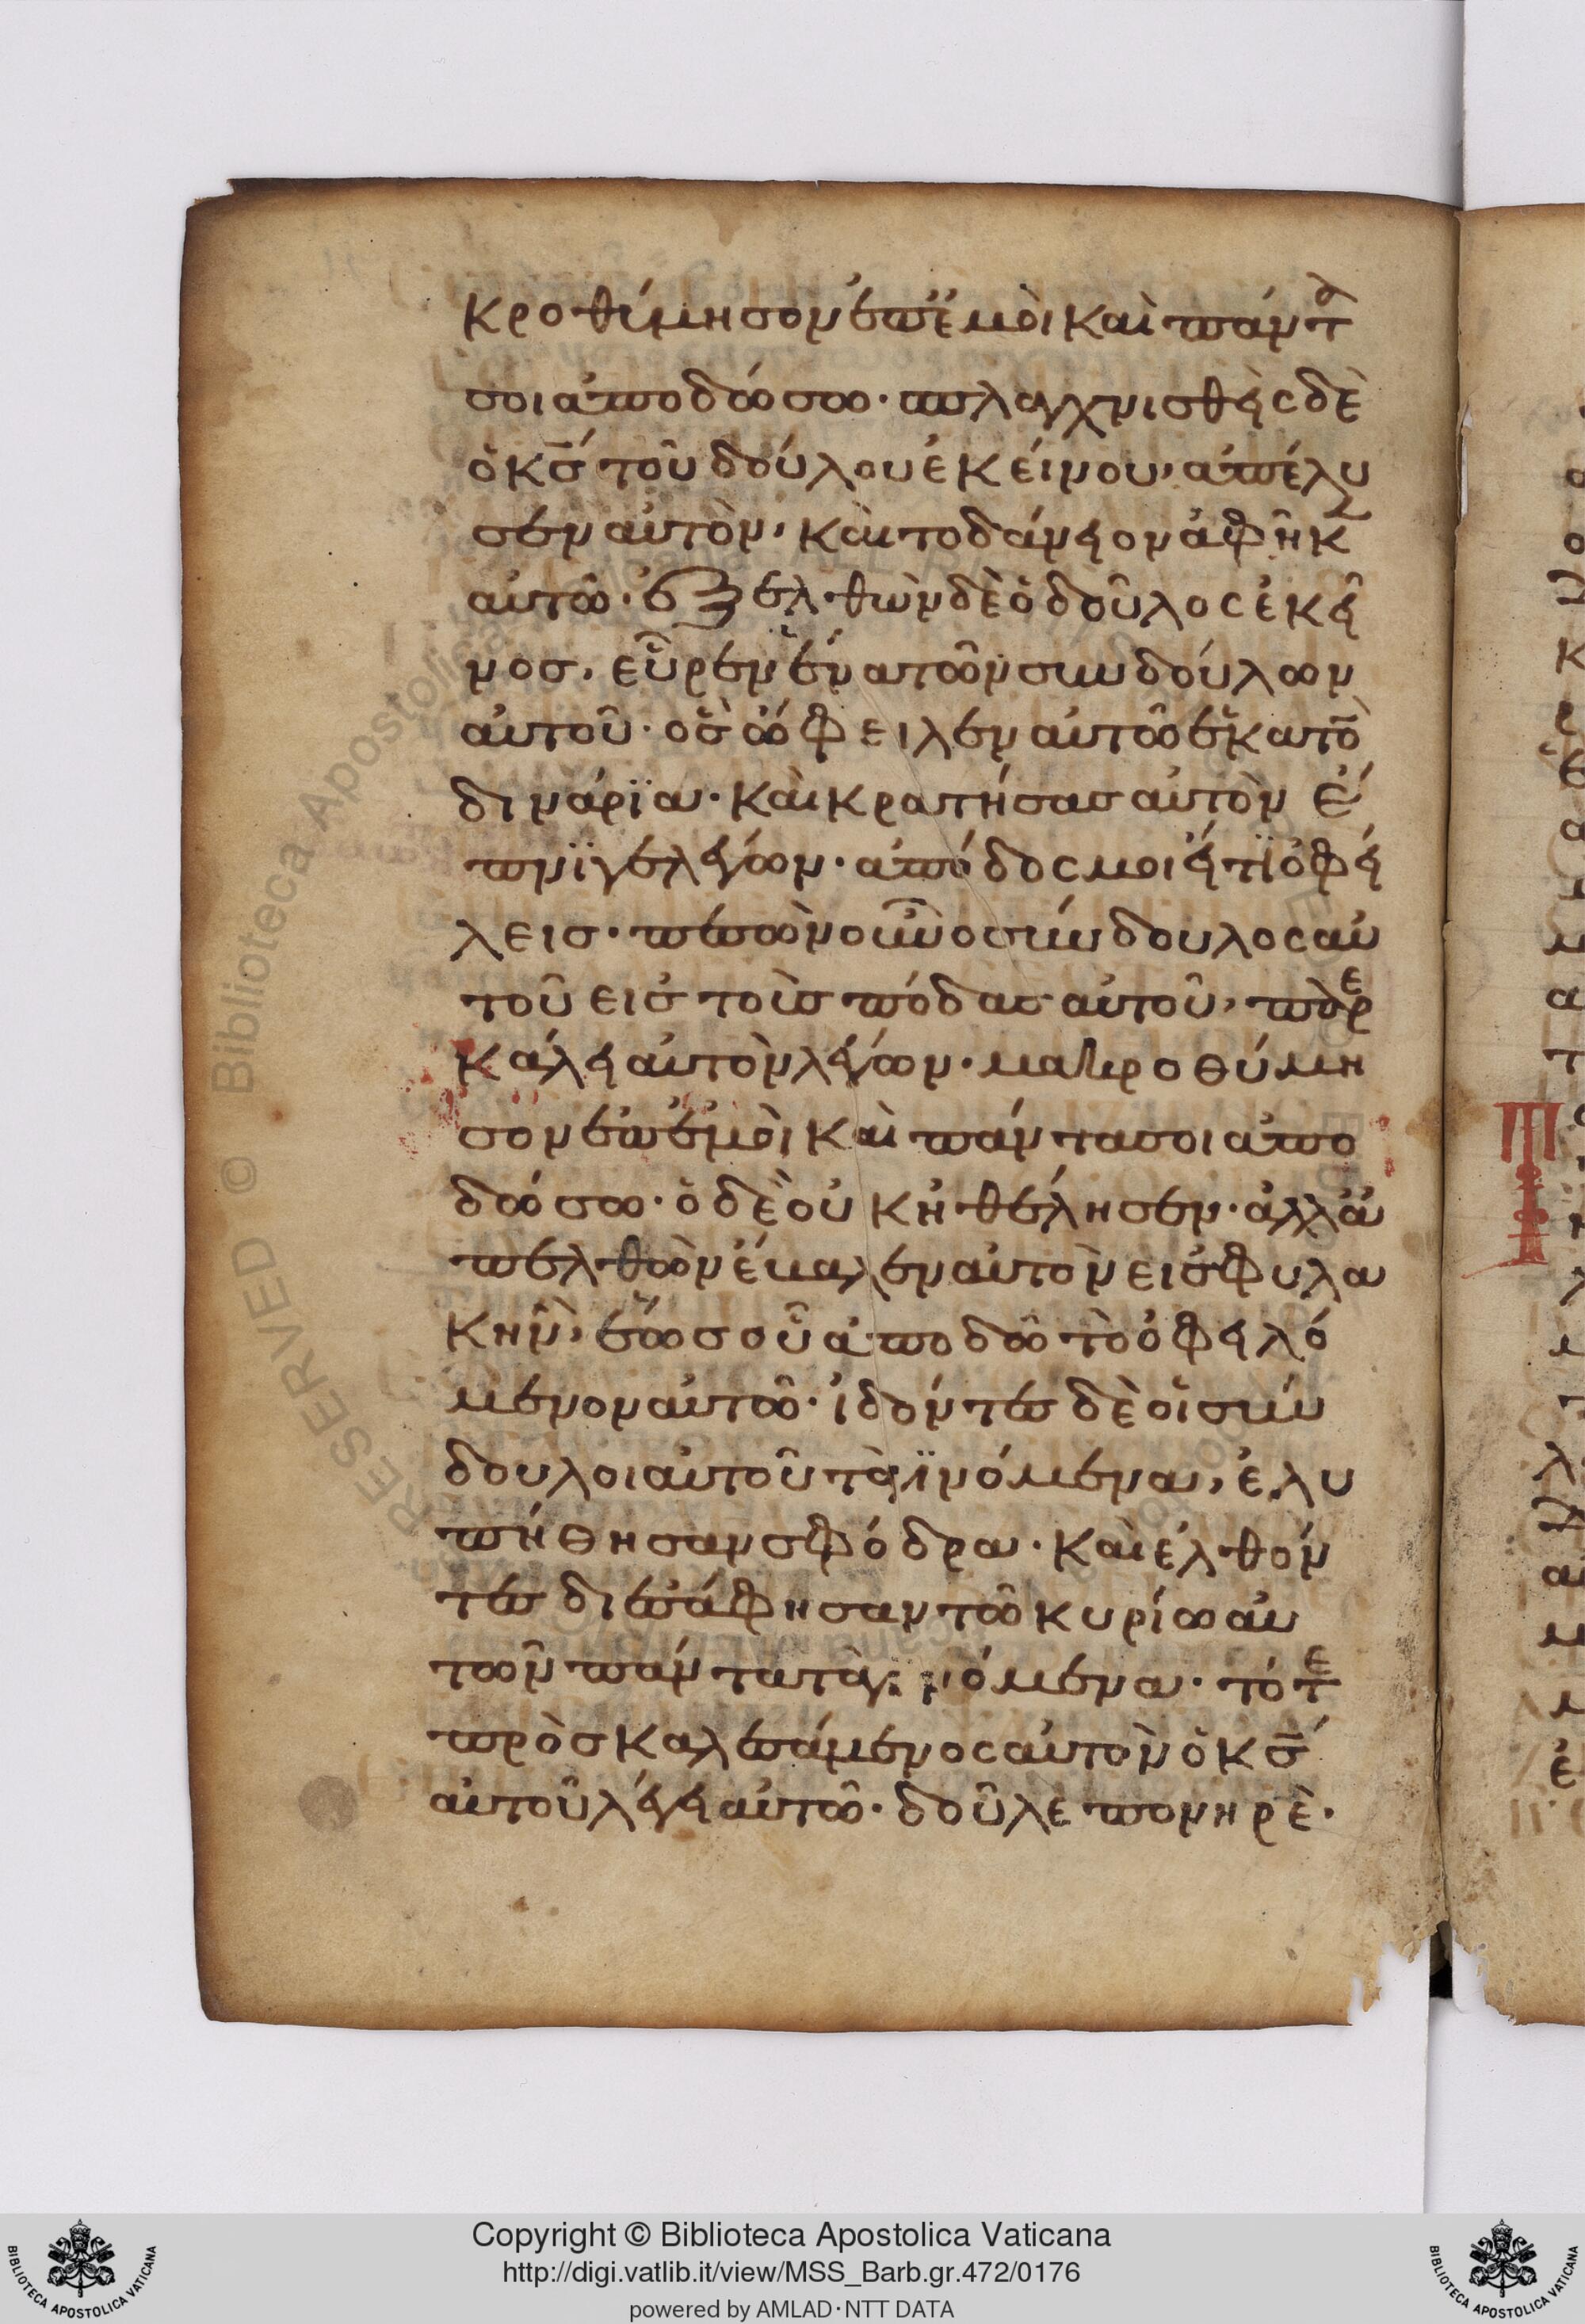 κροθύμησον ἐπ' ἐμοὶ καὶ πάντα
σοι ἀποδώσω· σπλαγχνισθεὶς δὲ
ὁ κ̅ς̅ τοῦ δούλου ἐκείνου, ἀπέλυ
σεν αὐτὸν, καὶ το δάνειον ἀφῆκ
αὐτῶ· ἐξελθὼν δὲ ὁ δοῦλος ἐκεῖ
νος, εὗρεν ἕνα τῶν συνδούλων
αὐτοῦ· ὃς ὤφειλεν αὐτῶ ἑκατὸ
δινάρϊα· καὶ κρατήσας αὐτὸν ἔ
πνϊγε λέγων· ἀπόδος μοι εἴ τϊ ὀφεί
λεις· πεσὼν οὖν ο σύνδουλος αὐ
τοῦ εις τοὺς πόδας αὐτοῦ, παρε
κάλει αὐτὸν λέγων· μακροθύμη
σον ἐπ' ἐμοὶ καὶ πάντα σοι ἀπο
δώσω· ὁ δὲ οὐκ ἠθέλησεν· ἀλλὰ ἀ
πελθὼν ἔβαλεν αὐτὸν εις φυλα
κὴν, ἕως οὗ ἀποδῶ τὸ ὀφειλό
μενον αὐτῶ· ἰδόντες δὲ οἱ σύν
δουλοι αὐτοῦ τὰ γϊνόμενα, ἐλυ
πήθησαν σφόδρα· καὶ ἐλθόν
τες διεσάφησαν τῶ κυρίω αὐ
τῶν πάντα τὰ γϊνόμενα· τότε
πρὸσκαλεσάμενος αὐτὸν ὁ κ̅ς̅
αὐτοῦ λέγει αὐτῶ· δοῦλε πονηρὲ·
Copyright © Biblioteca Apostolica Vaticana
http://digi.vatlib.it/view/MSS_Barb.gr.472/0176
powered by AMLAD·NTT DATA
BIBLIOTECA APOSTOLICA VATICANA
BIBLIOTECA APOSTOLICA VATICANA